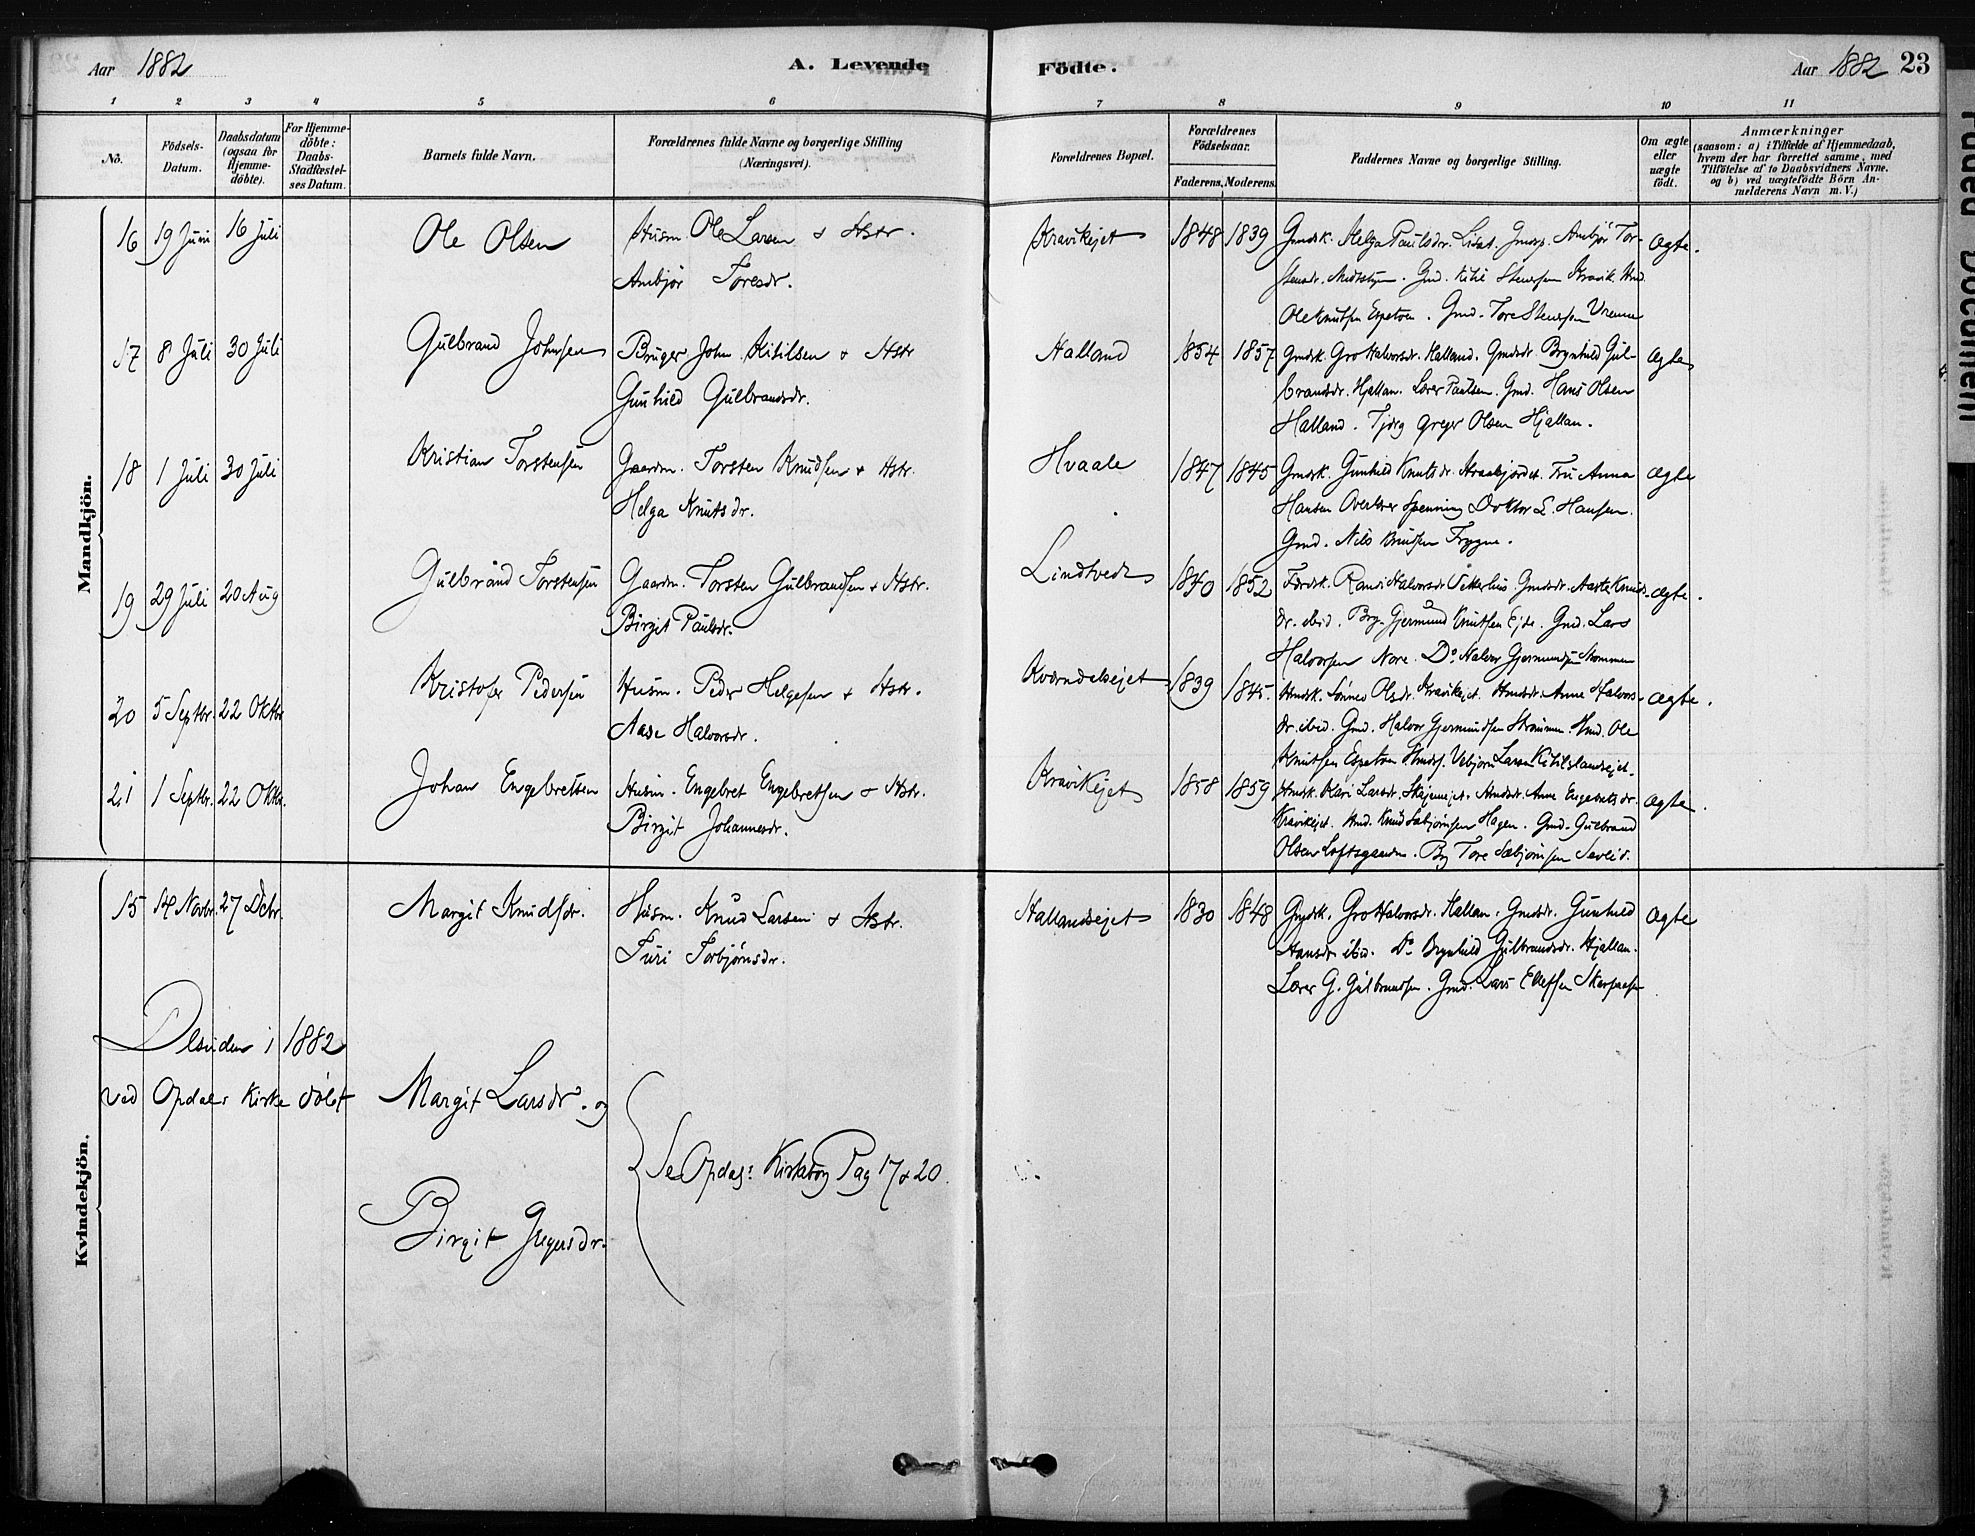 Aar 1882 A. Levende Födte. Aar 1882 23
1 2 3 4 5 6 7 8 9 10 11
No.
Födsels-
Datum.
Daabsdatum
(ogsaa for
Hjemme-
döbte).
For Hjemme-
döbte:
Daabs-
Stadfæstel-
ses Datum.
Barnets fulde Navn.
Forældrenes fulde Navne og borgerlige Stilling
(Næringsvei).
Forældrenes Bopæl.
Forældrenes
Födselsaar.
Faderens. Moderens.
Faddernes Navne og borgerlige Stilling.
Om ægte
eller
uægte
födt.
Anmærkninger
(saasom: a) i Tilfælde af Hjemmedaab,
hvem der har forrettet samme, med
Tilföielse af to Daabsvidners Navne.
og b) ved uægtefödte Börn An-
melderens Navn m. V.)
Mandkjön.
16 19 Juni 16 Juli Ole Olsen Husm. Ole Larsen & Hstr. Kravikejet 1848 1839 Gmdsk. Helga Paulsdr. Gmdsd. Ambjør Tor- ægte.
Ambjør Toresdr. stensdr. Gmd. Kitil Stensen Kravik. Hmd.
Ole Knutsen Espeton. Gmd. Tore Stensen Vrenne
17 8 Juli 30 Juli Gulbrand Johnsen Bruger John Kitilsen & Hstr Halland 1854 1857 Gmdsk. Gro Halvorsdr. Halland. Gmdsdr. Brynhild Gul- ægte
Gunhild Gulbrandsdr. brandsdr. Hjallan. Lærer Paulsen. Gmd. Hans Olsen
Halland. Greger Olsen Hjallan.
18 1 Juli 30 Juli Kristian Torstensen Gaardm. Torsten Knudsen & Hstr. Hvaale 1847 1845 Gmdsk. Gunhild Knutsdr. Fru Anna ægte
Helga Knutsdr. Hansen Overlærer Spenning Doktor E. Hansen.
Gmd. Nils Knudsen Frygne.
19 29 Juli 20 Aug Gulbrand Torstensen Gaardm. Torsten Gulbrandsen & Hstr. Lindtvedt 1840 1852 Randi Halvorsdr. Gmdsdr. Aaste Knuds- ægte.
Birgit Paulsdr. dr. ibid. Gjermund Knutsen Ejde. Gmd. Lars
Halvorsen Nore. Do Halvor Gjermundsen Strømmen
20 5 Septbr. 22 Oktbr Kristofer Pedersen Husm. Peder Helgesen & Hstr. Kværndalsejet 1839 1845. Hmdsk. Olsdr. Kravikejet. Hmdsdr. Anne Halvors- ægte.
Aase Halvorsdr. dr. ibid. Gmd. Halvor Gjermundsen Strømmen. Hmd. Ole
Knutsen Espeton Vebjørn Larsen Kitilslandsejet.
21 1 Septbr. 22 Oktbr. Johan Engebretsen Husm. Engebret Engebretsen & Hstr. Kravikejet 1858 1859 Hmdsk. Kari Larsdr. Skjønnejet. Hmdsdr. Anne Engebretsdr. ægte.
Birgit Johannesdr. Kravikejet. Hmd. Knud Sæbjørnsen Hagen. Gmd. Gulbrand
Olsen Loftsgaarden. Tore Sæbjørnsen
Kvindekjön.
15 14 Novbr. 27 Dcbr. Margit Knudsdr. Husm. Knud Larsen & Hstr. Hallandsejet 1830 1848 Gmdsk. Gro Halvorsdr. Hallan. Gmdsdr. Gunhild ægte
Turi Torbjørnsdr. Hansdr. ibid. Do Brynhild Gulbrandsdr. Hjallan.
Lærer G. Gulbrandsen. Gmd. Lars Ellefsen
Desuden i 1882
ved Opdals Kirke döbt Margit Larsdr. og
Se Opdals Kirkebog Pag 17 & 20.
Birgit Gregersdr.